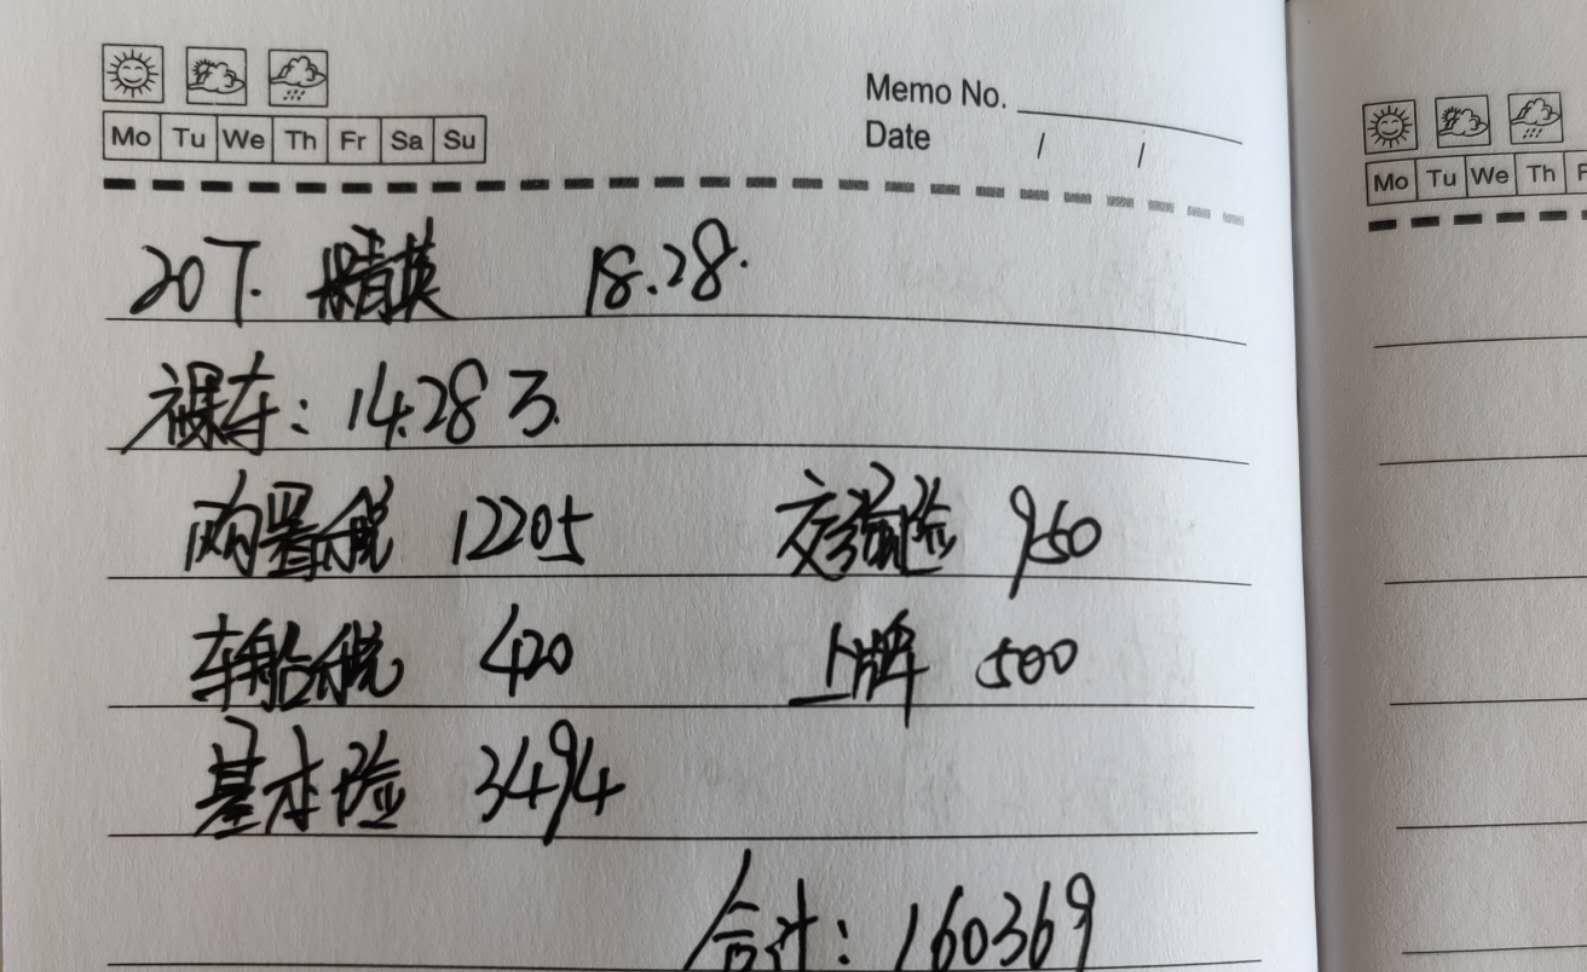 Memo No.
Mo Tu We Th Fr Sa Su
Date / /
20T. 精英 18.28.
裸车: 14.28万.
购置税 12205 交强险 950
车船税 420 上牌 500
基本险 3494
合计: 160369
Mo Tu We Th F